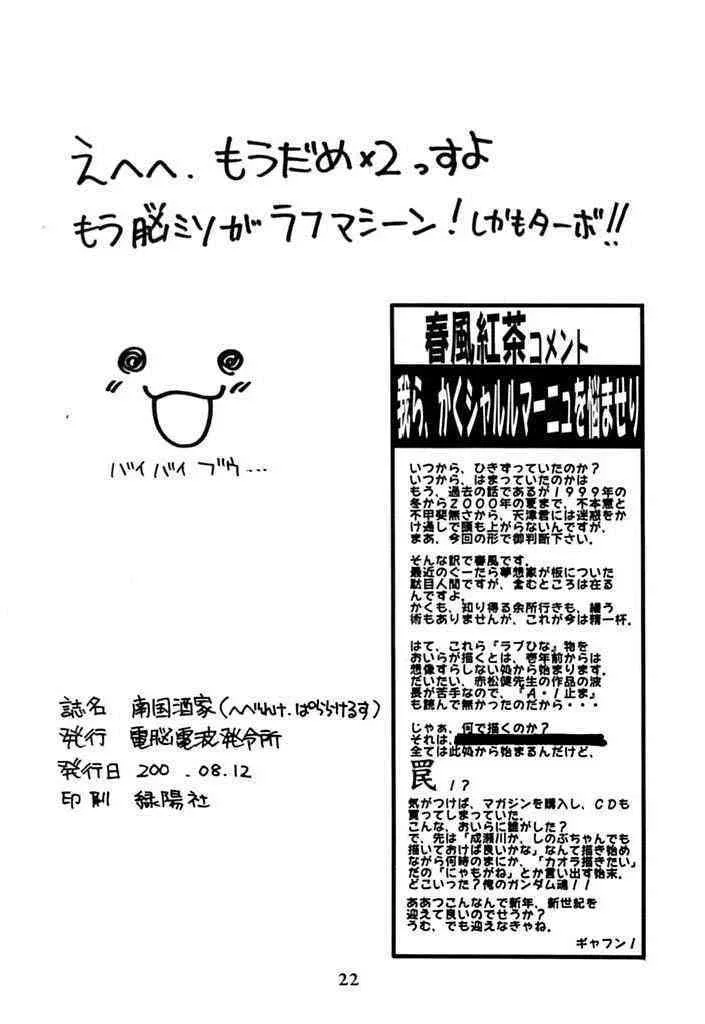 えへへ、もうだめ×2っすよ
もう脳ミソがラフマシーン!しかもターボ!!
バイバイブゥ…
春風紅茶コメント
我ら、かくシャルルマーニュを悩ませり
いつから、ひきずっていたのか?
いつから、はまっていたのかは
もう、過去の話であるが1999年の
冬から2000年の夏まで、不本意と
不甲斐無さから、天津君には迷惑をか
け通しで頭も上がらないんですが、
まあ、今回の形で御判断下さい。
そんな訳で春風です。
最近のぐーたら夢想家が板についた
駄目人間ですが、含むところは在る
んですよ。
かくも、知り得る余所行きも、繕う
術もありませんが、これが今は精一杯。
はて、これら『ラブひな』物を
おいらが描くとは、壱年前からは
想像すらしない処から始まります。
だいたい、赤松健先生の作品の波
長が苦手なので、『A・I止ま』
も読んで無かったのだから・・・
じゃぁ、何で描くのか?
それは、
全ては此処から始まるんだけど、
罠!?
気がつけば、マガジンを購入し、CDも
買ってしまっていた。
こんな、おいらに誰がした?
で、先は「成瀬川か、しのぶちゃんでも
描いておけば良いかな」なんて描き始め
ながら何時のまにか、「カオラ描きたい」
だの「にゃもがね」とか言い出す始末。
どこいった?俺のガンダム魂!!
ああつこんなんで新年、新世紀を
迎えて良いのでせうか?
うむ、でも迎えなきゃね。
ギャフン!
誌名 南国酒家(へべれけ.ぱららけるす)
発行 電脳電波発令所
発行日 200 .08.12
印刷 緑陽社
22